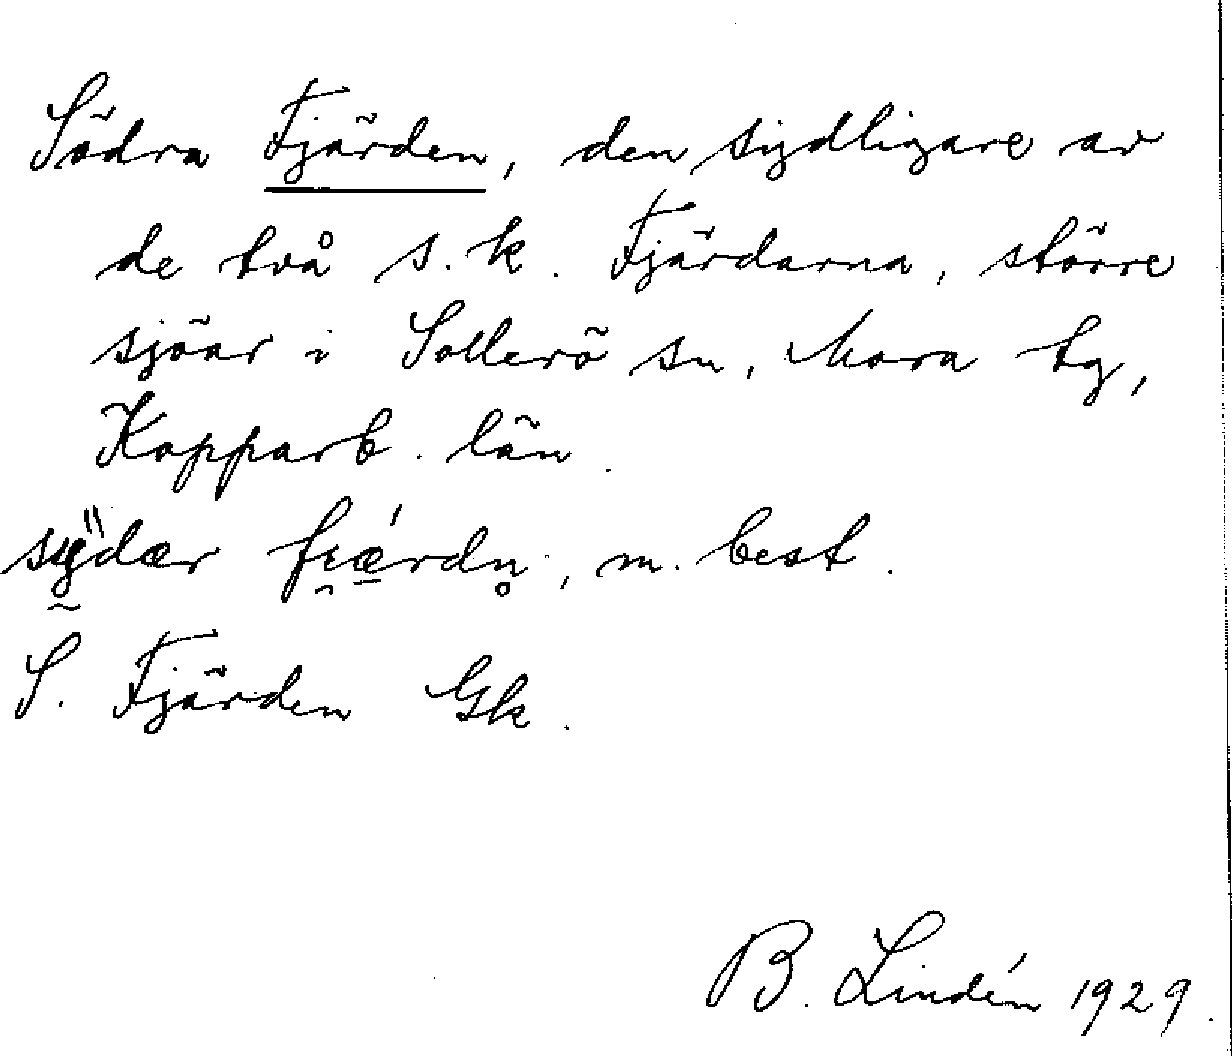 Södra Fjärden, den sydligare av
de två s. k. Fjärdarna, större
sjöar i Sollerö sn, Mora tg,
Kopparb. län.
m. best.
S. Fjärden Gk.
B. Lindén 1929.